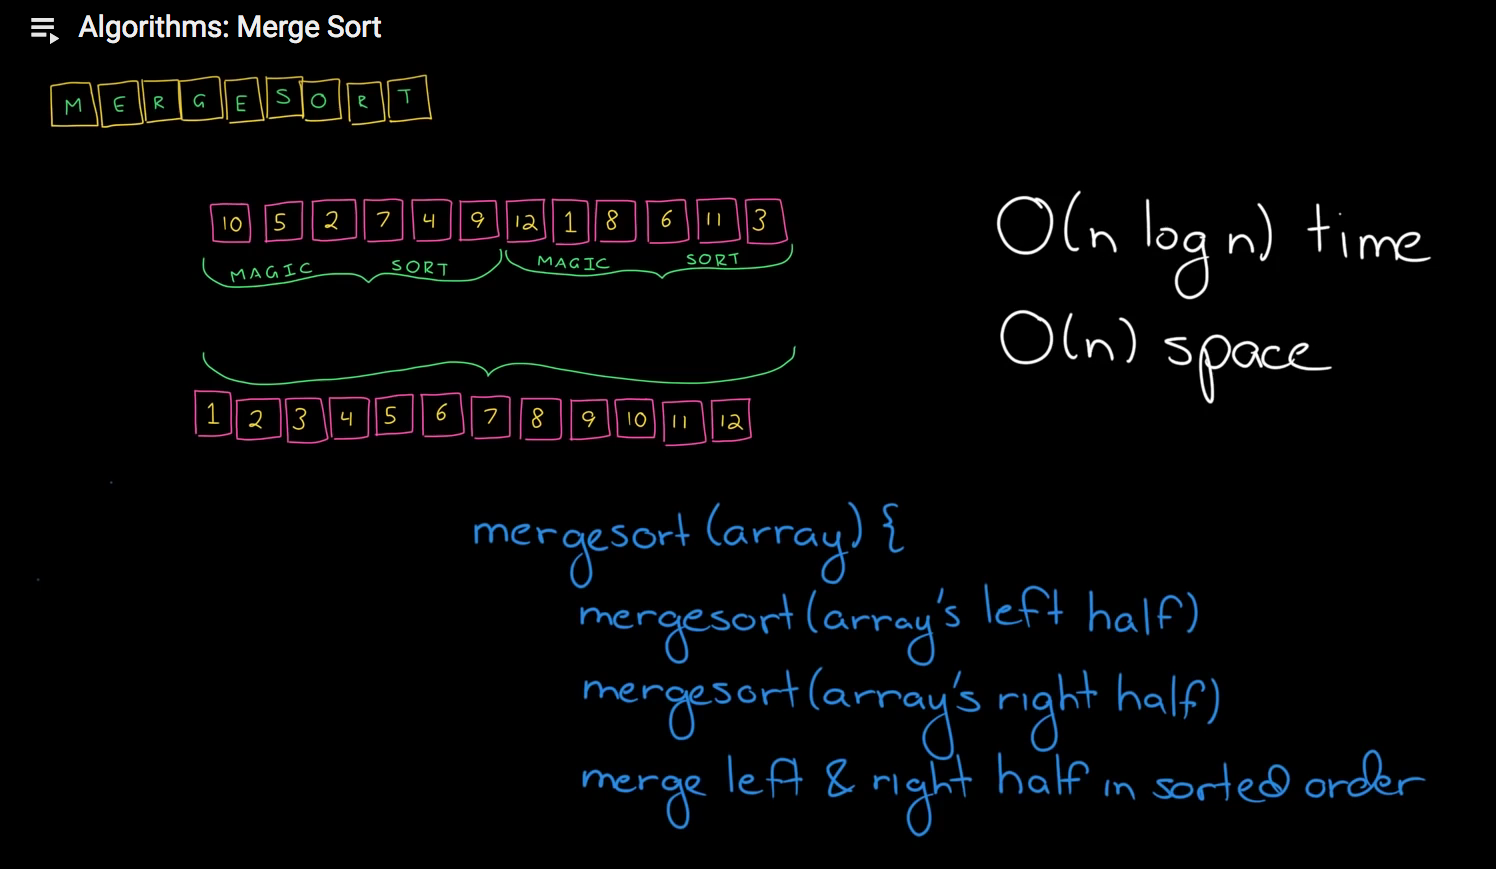 Algorithms: Merge Sort
M E R G E S O R T
10 5 2 7 4 9 12 1 8 6 11 3
MAGIC SORT MAGIC SORT
O(n log n) time
O(n) space
1 2 3 4 5 6 7 8 9 10 11 12
mergesort (array) {
mergesort (array's left half)
mergesort (array's right half)
merge left & right half in sorted order